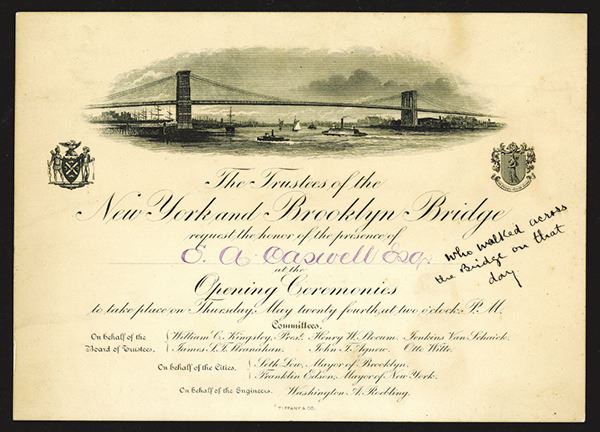 The Trustees of the
New York and Brooklyn Bridge
request the honor of the presence of
E. A. Caswell Esq.
who walked across
the Bridge on that
day
at the
Opening Ceremonies
to take place on Thursday, May twenty fourth, at two o'clock P. M.
Committees.
On behalf of the Board of Trustees. William C. Kingsley, Pres!. Henry W. Slocum. Jenkins Van Schaick.
James S. T. Stranahan. John T. Agnew. Otto Witte.
On behalf of the Cities, Seth Low, Mayor of Brooklyn.
Franklin Edson, Mayor of New York.
On behalf of the Engineers. Washington A. Roebling.
TIFFANY & CO.